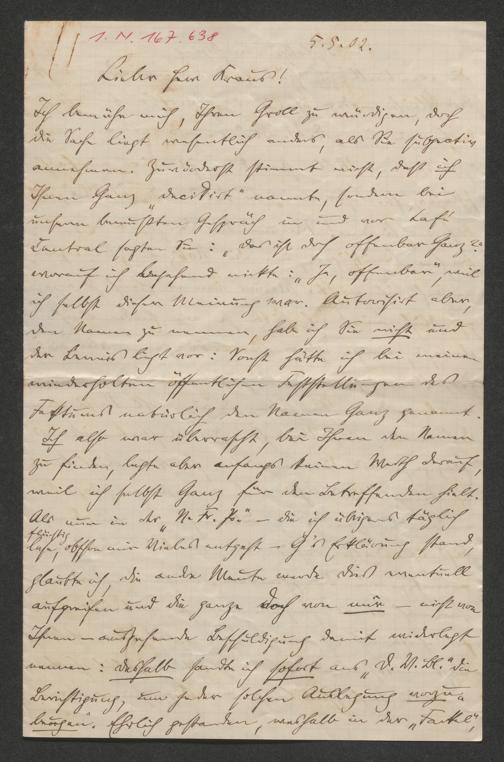 I. N. 167.638
5.5.02.
Lieber Herr Kraus!
Ich bemühe mich, Ihren Groll zu würdigen, doch
die Sache liegt wesentlich anders, als Sie subjectiv
annehmen. Zuvörderst stimmt nicht, daß ich
Ihnen Ganz „decidirt“ nannte, sondern bei
unserm bewußten Gespräch in und vor Café
Central sagten Sie: „das ist doch offenbar Ganz“
worauf ich bejahend nickte: „Ja, offenbar“, weil
ich selbst dieser Meinung war. Autorisirt aber,
den Namen zu nennen, hab ich Sie nicht und
der Beweis liegt vor: Sonst hätte ich bei meinen
wiederholten öffentlichen Feststellungen des
Faktums natürlich den Namen Ganz genannt.
Ich also war überrascht, bei Ihnen den Namen
zu finden, legte aber anfangs keinen Werth darauf,
weil ich selbst Ganz für den Betreffenden hielt.
Als nun in der „N. Fr. Pr.“ – die ich übrigens täglich
flüchtig
lese, obschon mir Vieles entgeht – G's Erklärung stand,
glaubte ich, die ande Meute werde dies eventuell
aufgreifen und die ganze doch von mir – nicht von
Ihnen – ausgehende Beschuldigung damit widerlegt
nennen: deshalb sandte ich sofort ans „D. V. Bl.“ die
Berichtigung, um jeder solchen Auslegung vorzu-
beugen. Ehrlich gestanden, weshalb in der „Fackel“,